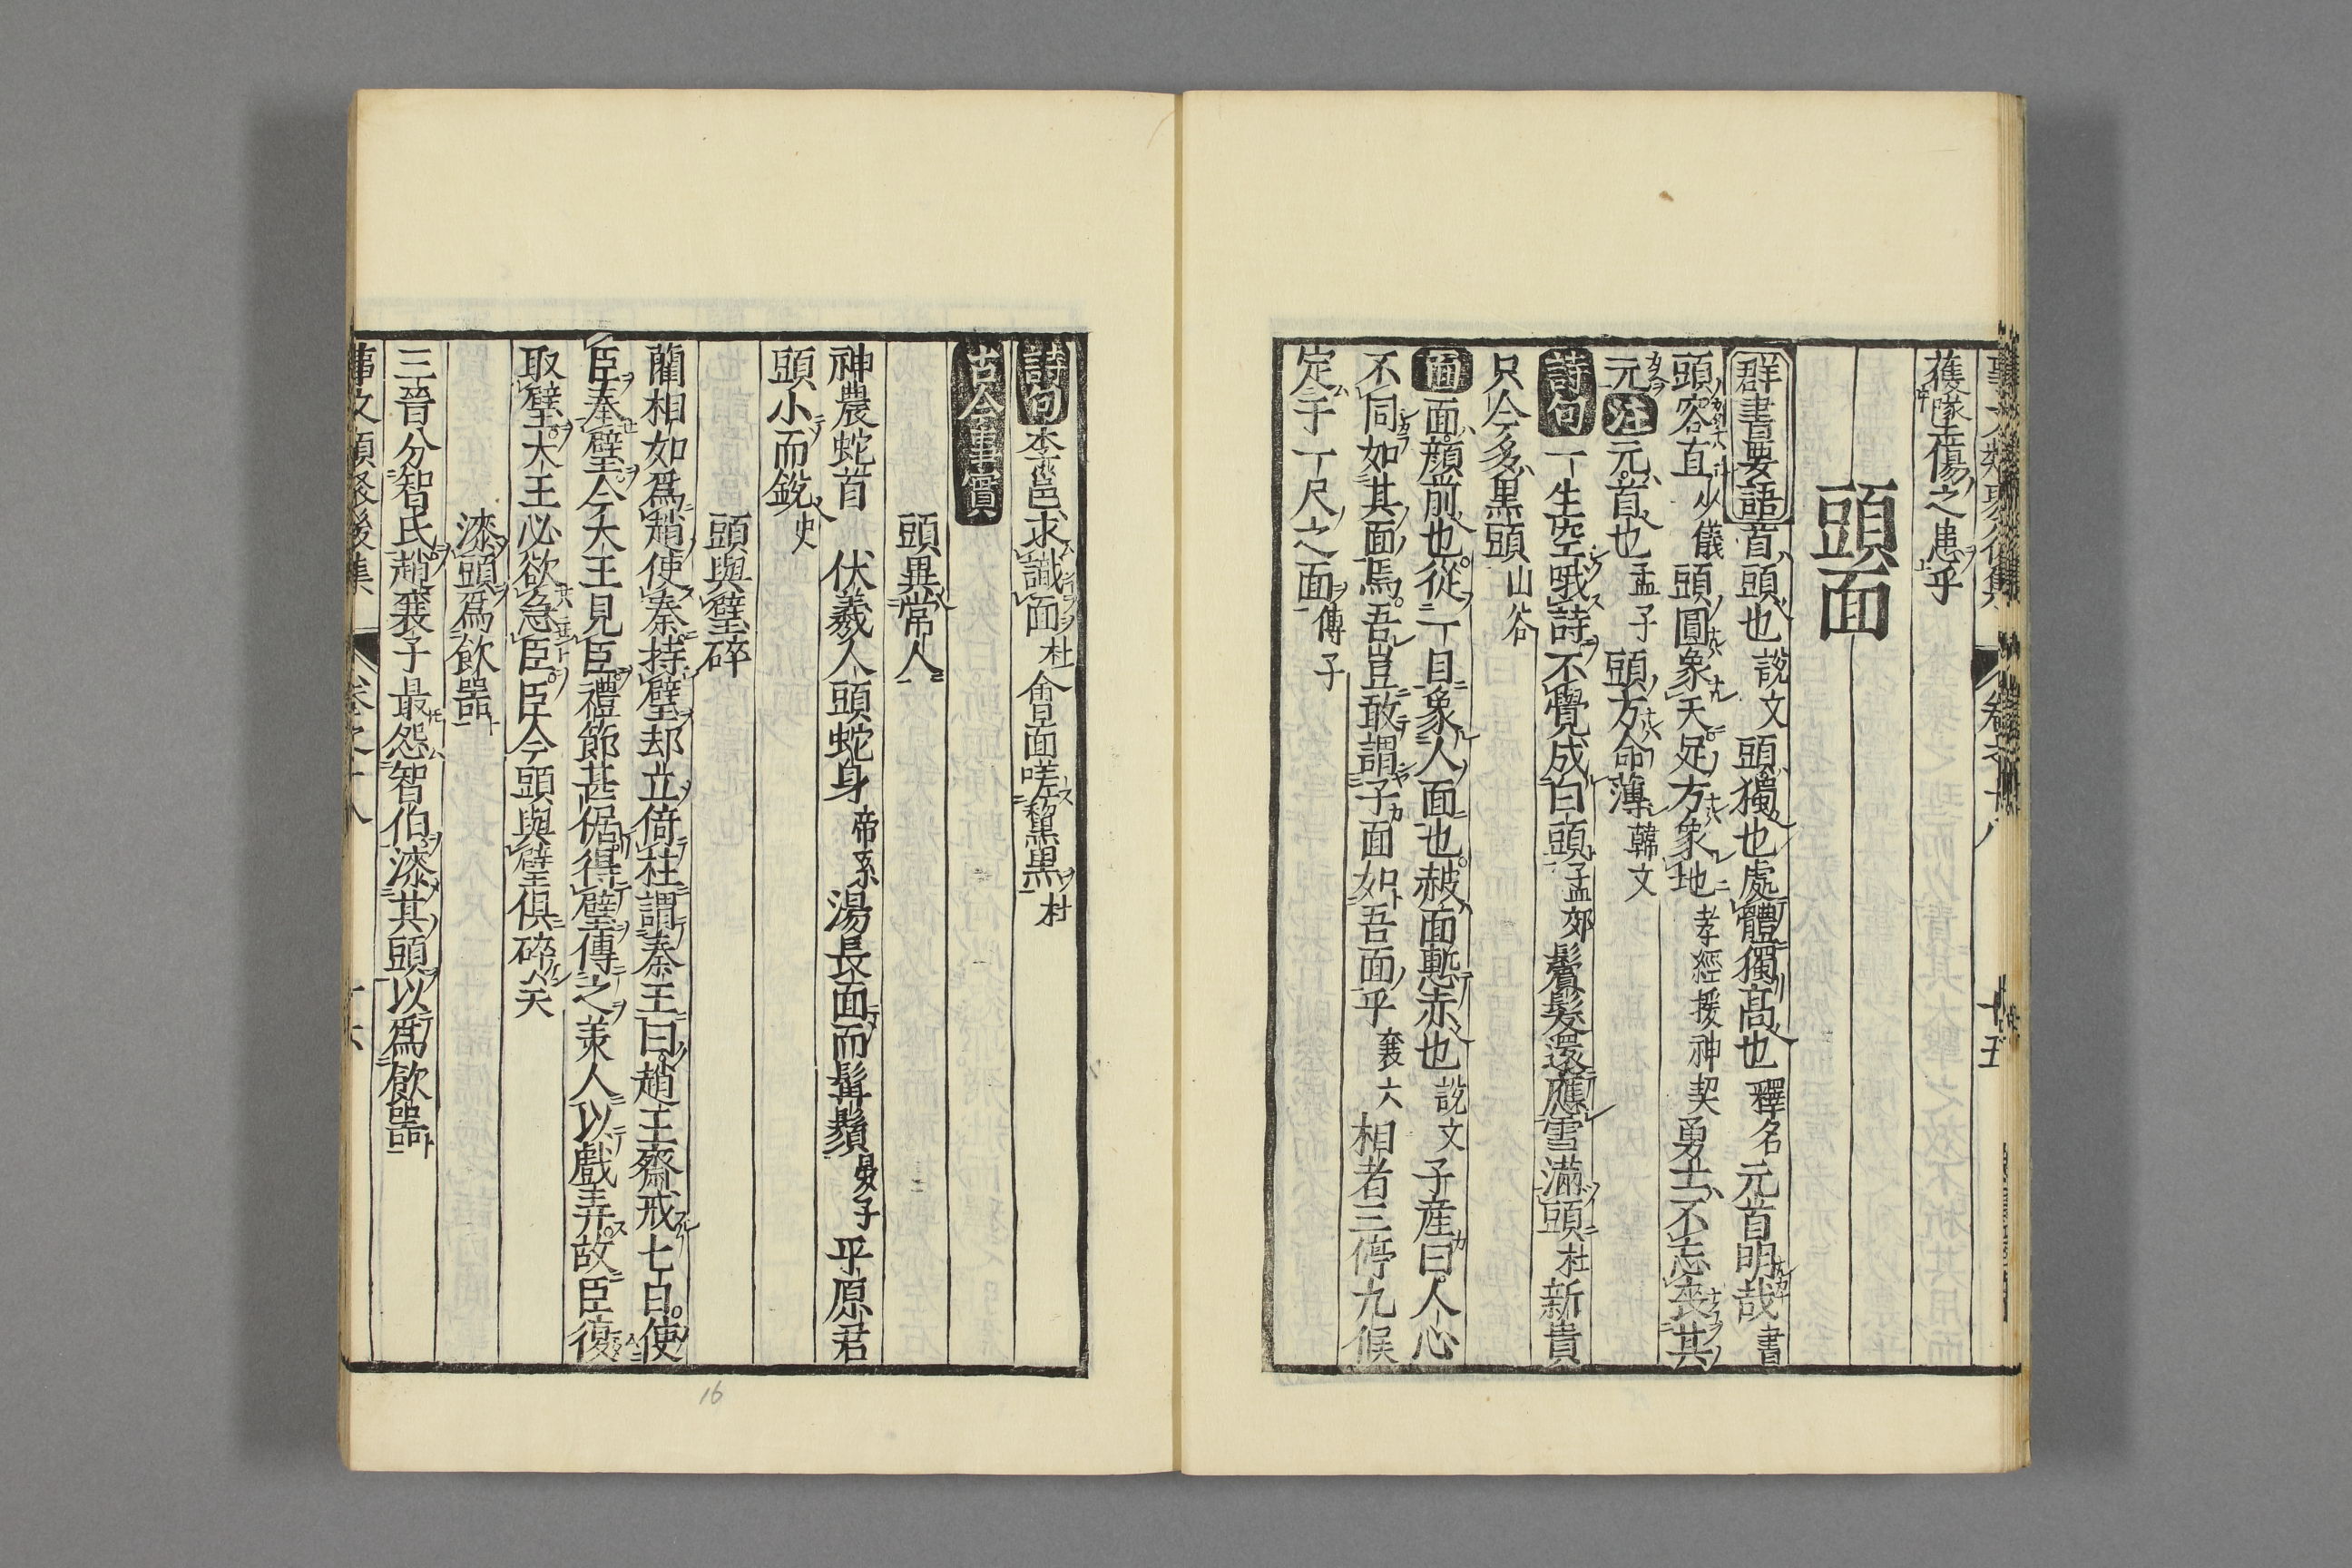 獲墜走傷之患乎
頭面
群書要語首頭也說文頭獨也處體獨髙也釋名元首明哉書
頭容直少儀頭圓象天足方象地孝經援神契勇士不忘喪其
元注元首也孟子頭方命薄韓文
詩句一生空哦詩不覺成白頭孟郊鬢髮還應雪滿頭杜新貴
只今多黒頭山谷
面面顔前也從一目象人面也赧面慙赤也說文子産曰人心
不同如其面焉吾豈敢謂子面如吾面乎襄六相者三停九候
定于一尺之面傳子
詩句李邕求識面杜會面嗟黧黒杜
古今事實
頭異常人
神農蛇首伏羲人頭蛇身帝系湯長面而髯鬚晏子平原君
頭小而銳史
頭與璧碎
藺相如爲趙使秦持璧却立倚柱謂秦王曰趙王齋戒七日使
臣奉璧今大王見臣禮節甚倨得璧傳之美人以戲弄故臣復
取璧大王必欲急臣臣今頭與璧俱碎矣
漆頭爲飲器
三晉分智氏趙襄子最怨智伯漆其頭以爲飲器
事文類聚後集 卷之十八 十六
16